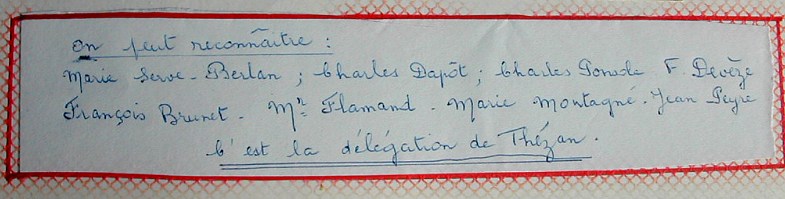 On peut reconnaître :
Marie Serve-Berlan ; Charles Dapôt ; Charles Ponsode F. Devèze
François Brunet - Mr Flamand - Marie Montagné - Jean Peyre
C'est la délégation de Thézan.